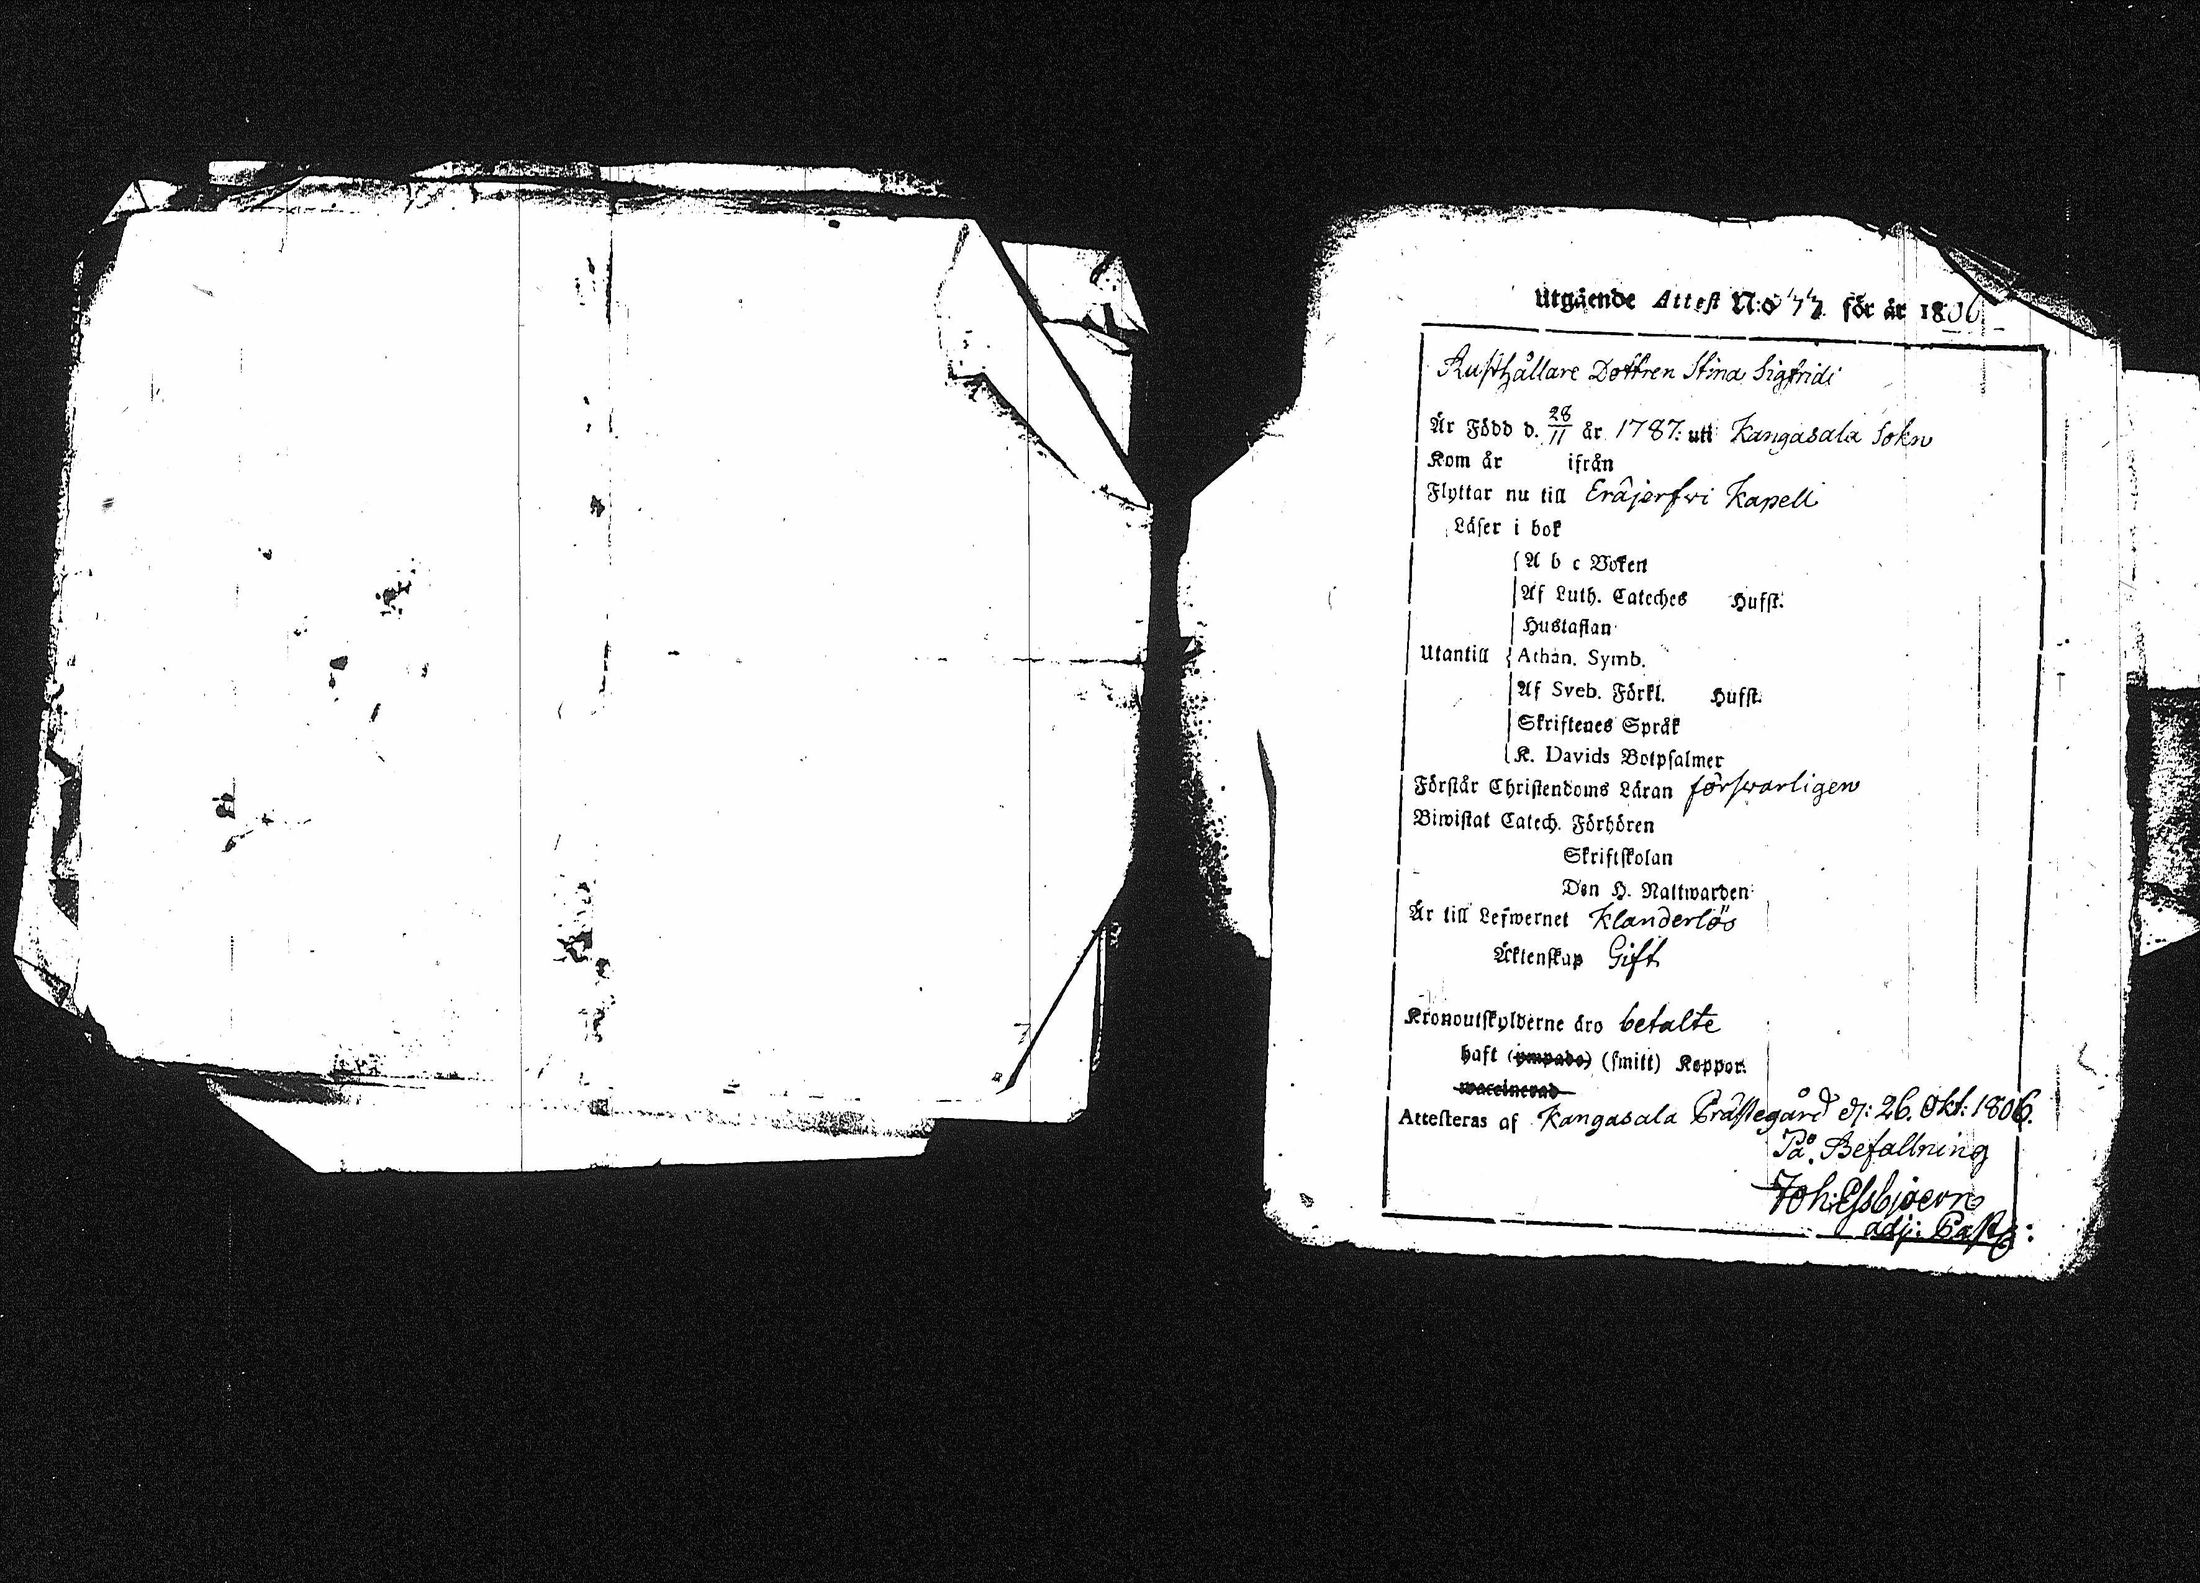 Utgående Attest N:o 77. för år 1806.
Rusthållare Dottren Stina Sigfridi
Är Född d. 28/11 år 1787. uti Kangasala Sokn
Kom år ifrån
Flyttar nu till Eräjerfwi Kapell
Läser i bok
A b c Boken
Af Luth. Cateches Hufst.
Hustaflan
Utantill Athan. Symb.
Af Sveb. Förkl. Hufst.
Skriftenes Språk
K. Davids Botpsalmer
Förstår Christendoms Läran förswarligen
Biwistat Catech. Förhören
Skriftskolan
Den H. Nattwarden
Är till Lefwernet Klanderlös
Äktenskap Gift
Kronoutskylderne äro betalte
haft (ympade) (smitt) Koppor.
waccinerad
Attesteras af Kangasala Prästegård d: 26. Okt: 1806.
På Befallning
Joh: Essbjoern
adj: Past: